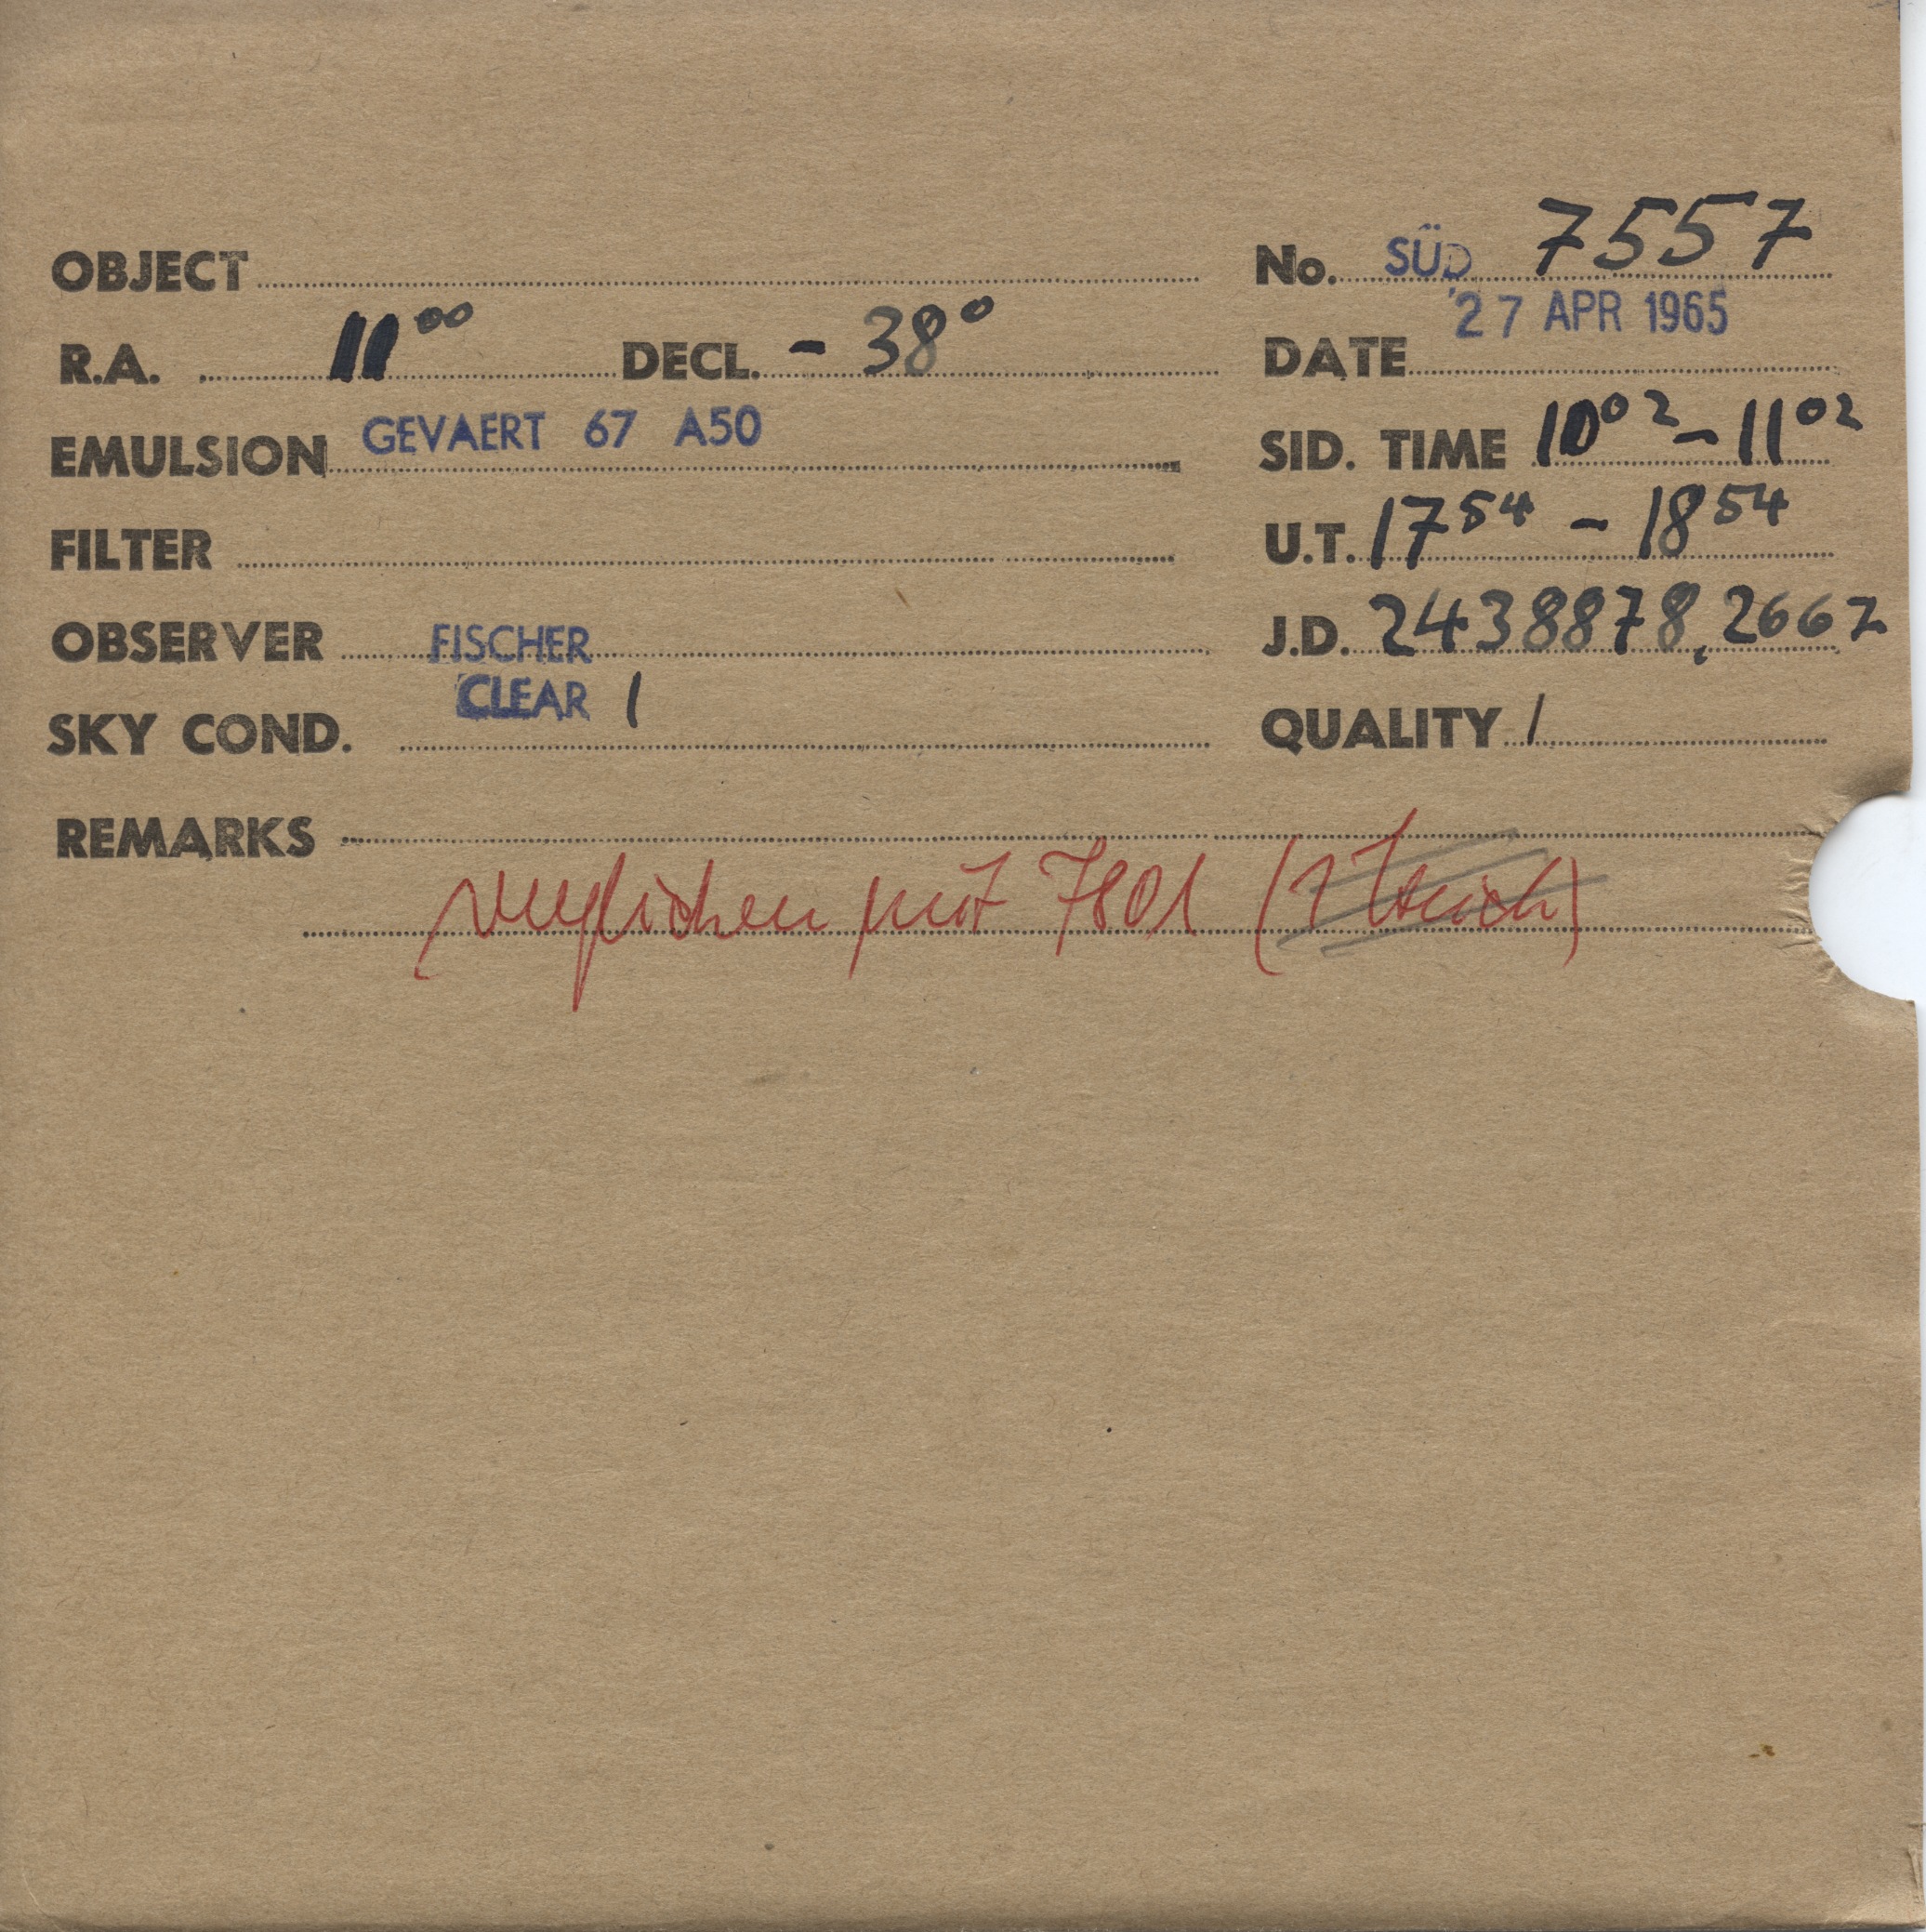 OBJECT No. SÜD 7557
R.A. 11⁰⁰ DECL. - 38° DATE 27 APR 1965
EMULSION GEVAERT 67 A50 SID. TIME 10⁰² - 11⁰²
FILTER U.T. 17⁵⁴ - 18⁵⁴
OBSERVER FISCHER J.D. 2438878,2667
SKY COND. CLEAR 1 QUALITY 1
REMARKS
verglichen mit 7801 (1 Strich)